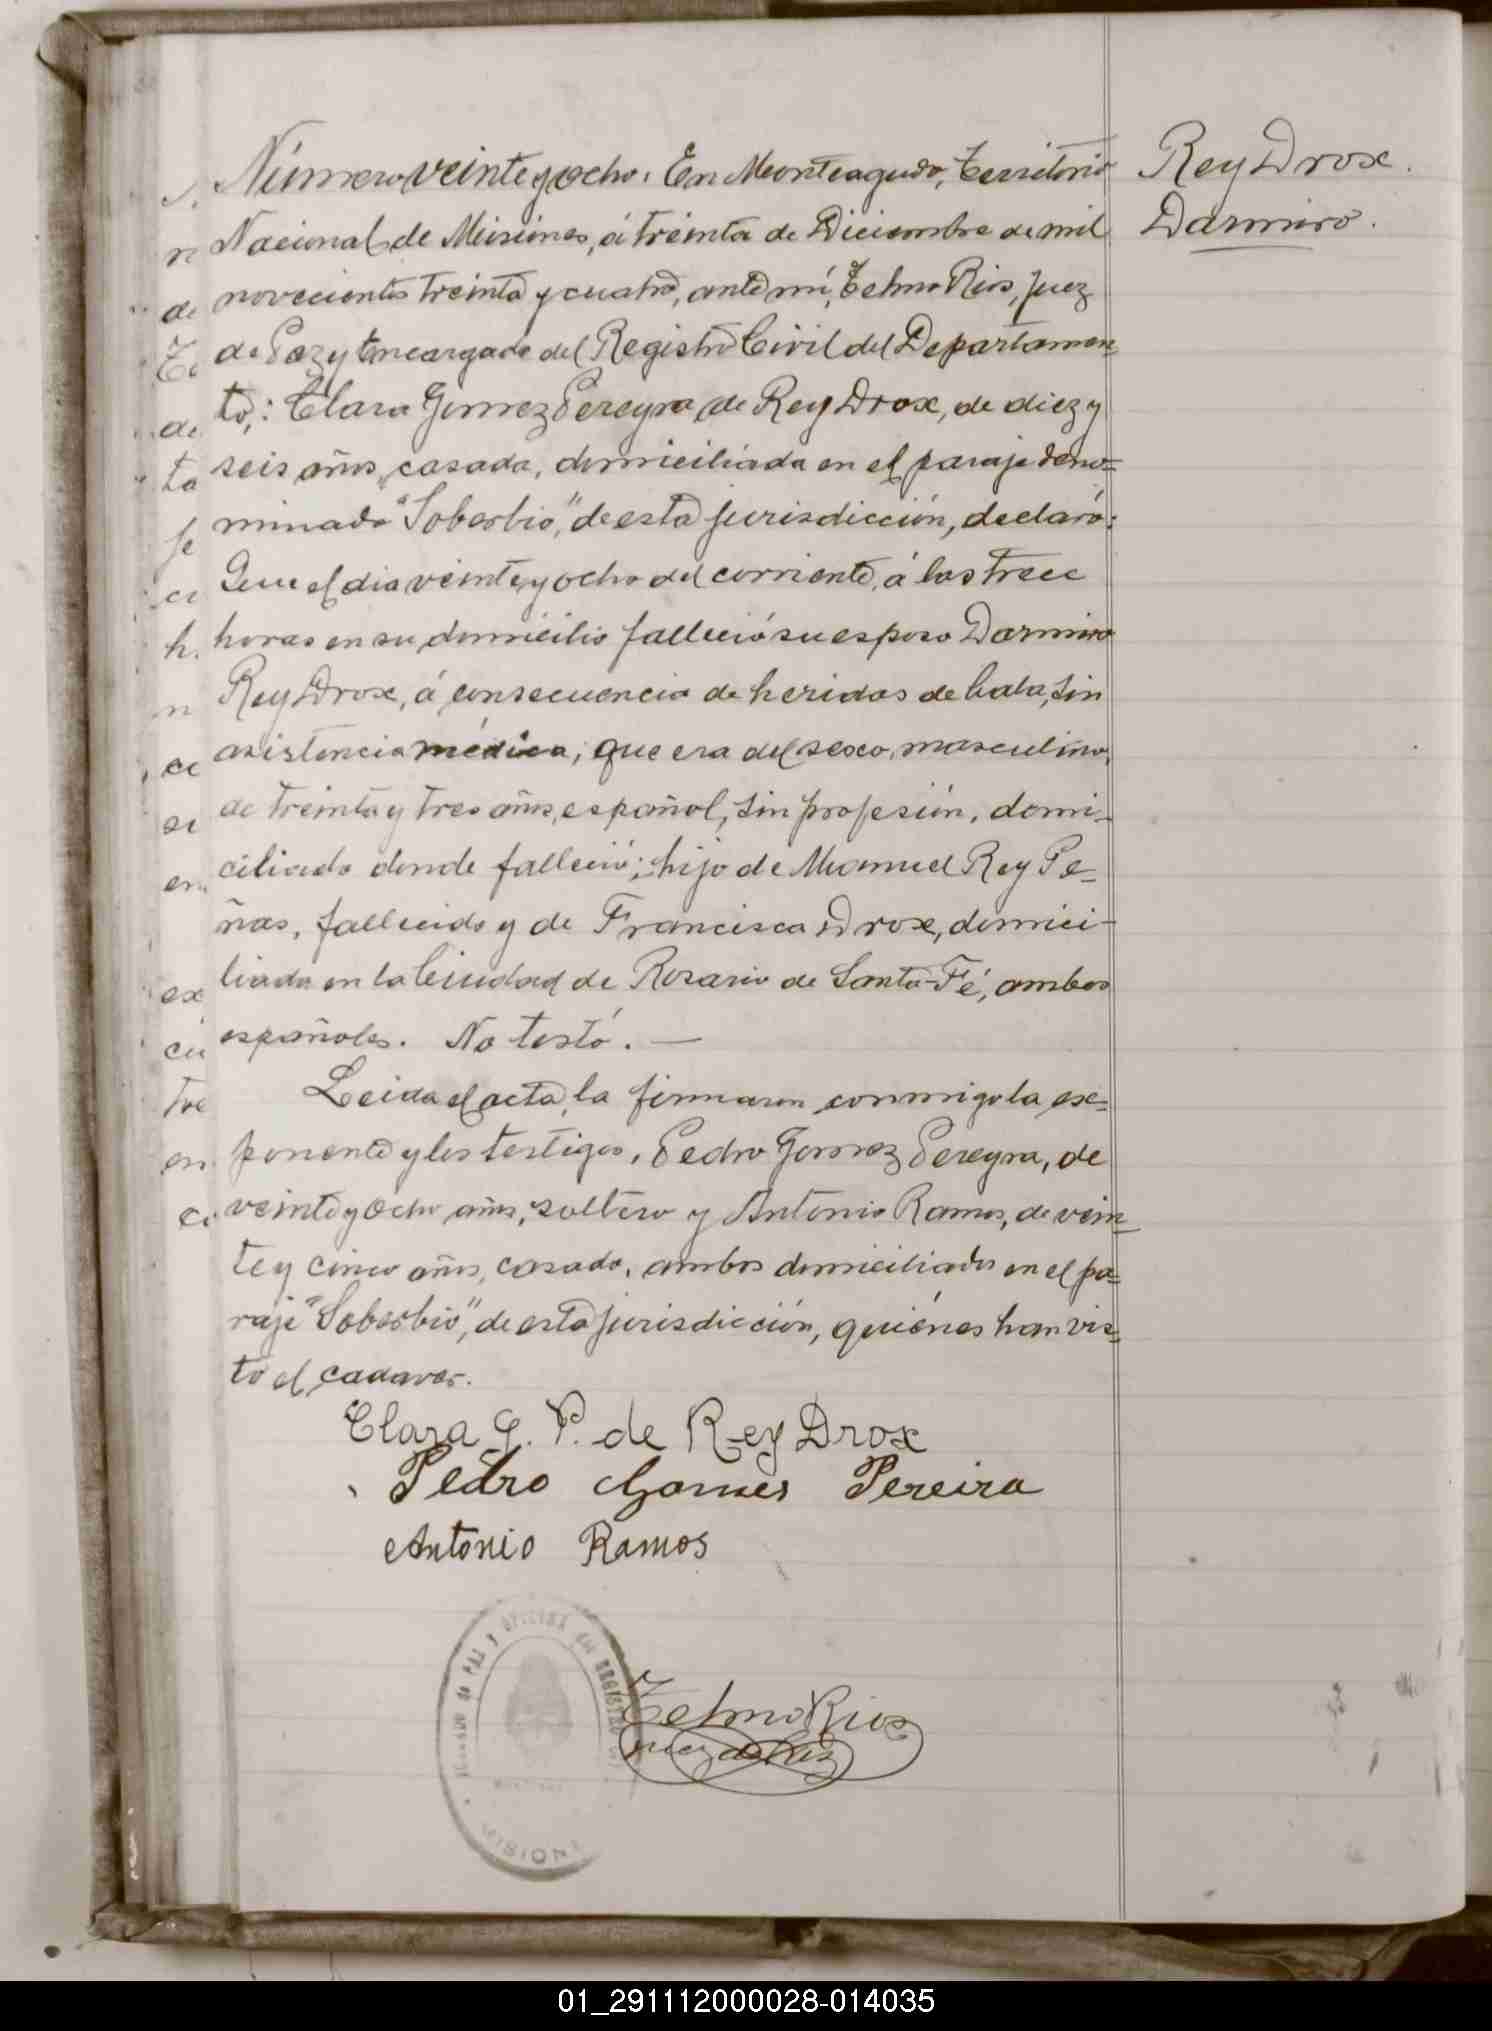 Número veinte y ocho. En Monteagudo, Territorio
Nacional de Misiones, á treinta de Diciembre de mil
novecientos treinta y cuatro, ante mí, Telmo Rios, Juez
de Paz y Encargado del Registro Civil del Departamen-
to,: Clara Gomez Pereyra de Rey Drox, de diez y
seis años, casada, domiciliada en el paraje deno=
minado "Soberbio," de esta jurisdicción, declaró:
Que el dia veinte y ocho del corriente, á las trece
horas en su domicilio falleció su esposo Darmiro
Rey Drox, á consecuencia de heridas de bala, sin
asistencia médica; que era del sexo masculino,
de treinta y tres años, español, sin profesión, domi-
ciliado donde falleció; hijo de Manuel Rey Pe-
ñas, fallecido y de Francisca Drox, domici-
liada en la Ciudad de Rosario de Santa-Fé, ambos
españoles. No testó. —
Leida el acta, la firmaron conmigo la ex=
ponente y los testigos, Pedro Gomez Pereyra, de
veinte y ocho años, soltero y Antonio Ramos, de vein-
te y cinco años, casado, ambos domiciliados en el pa=
raje "Soberbio," de esta jurisdicción, quiénes han vis-
to el cadaver.
Clara G. P. de Rey Drox
Pedro Gomes Pereira
Antonio Ramos
Telmo Rios
Juez de Paz
Rey Drox.
Darmiro.
JUZGADO de PAZ y OFICINA del REGISTRO
MISIONES
01_291112000028-014035